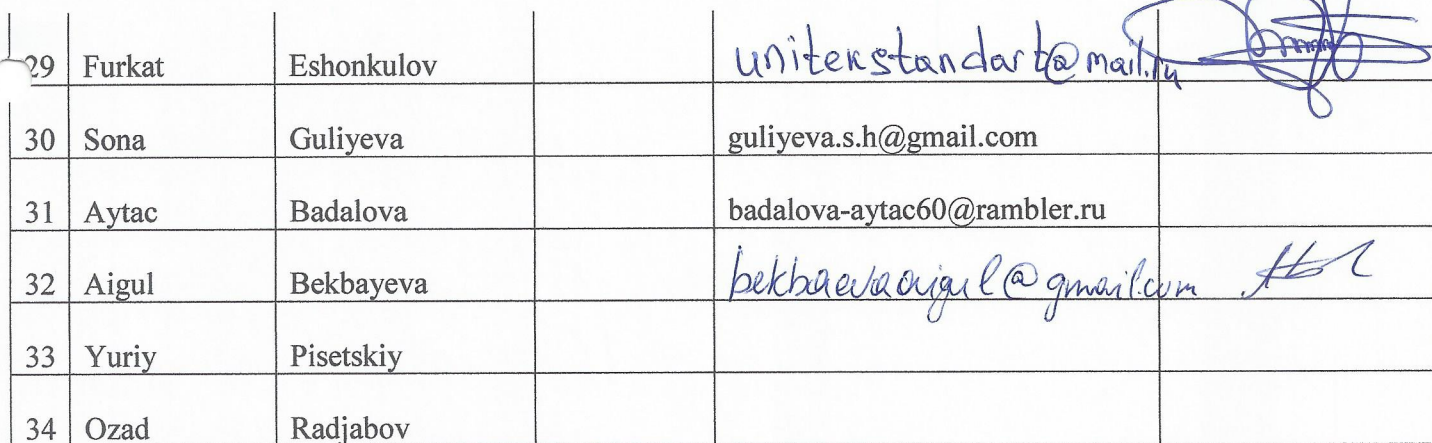 29 Furkat Eshonkulov unitekstandart@mail.ru
30 Sona Guliyeva guliyeva.s.h@gmail.com
31 Aytac Badalova badalova-aytac60@rambler.ru
32 Aigul Bekbayeva bekbaevaaigul@gmail.com
33 Yuriy Pisetskiy
34 Ozad Radjabov